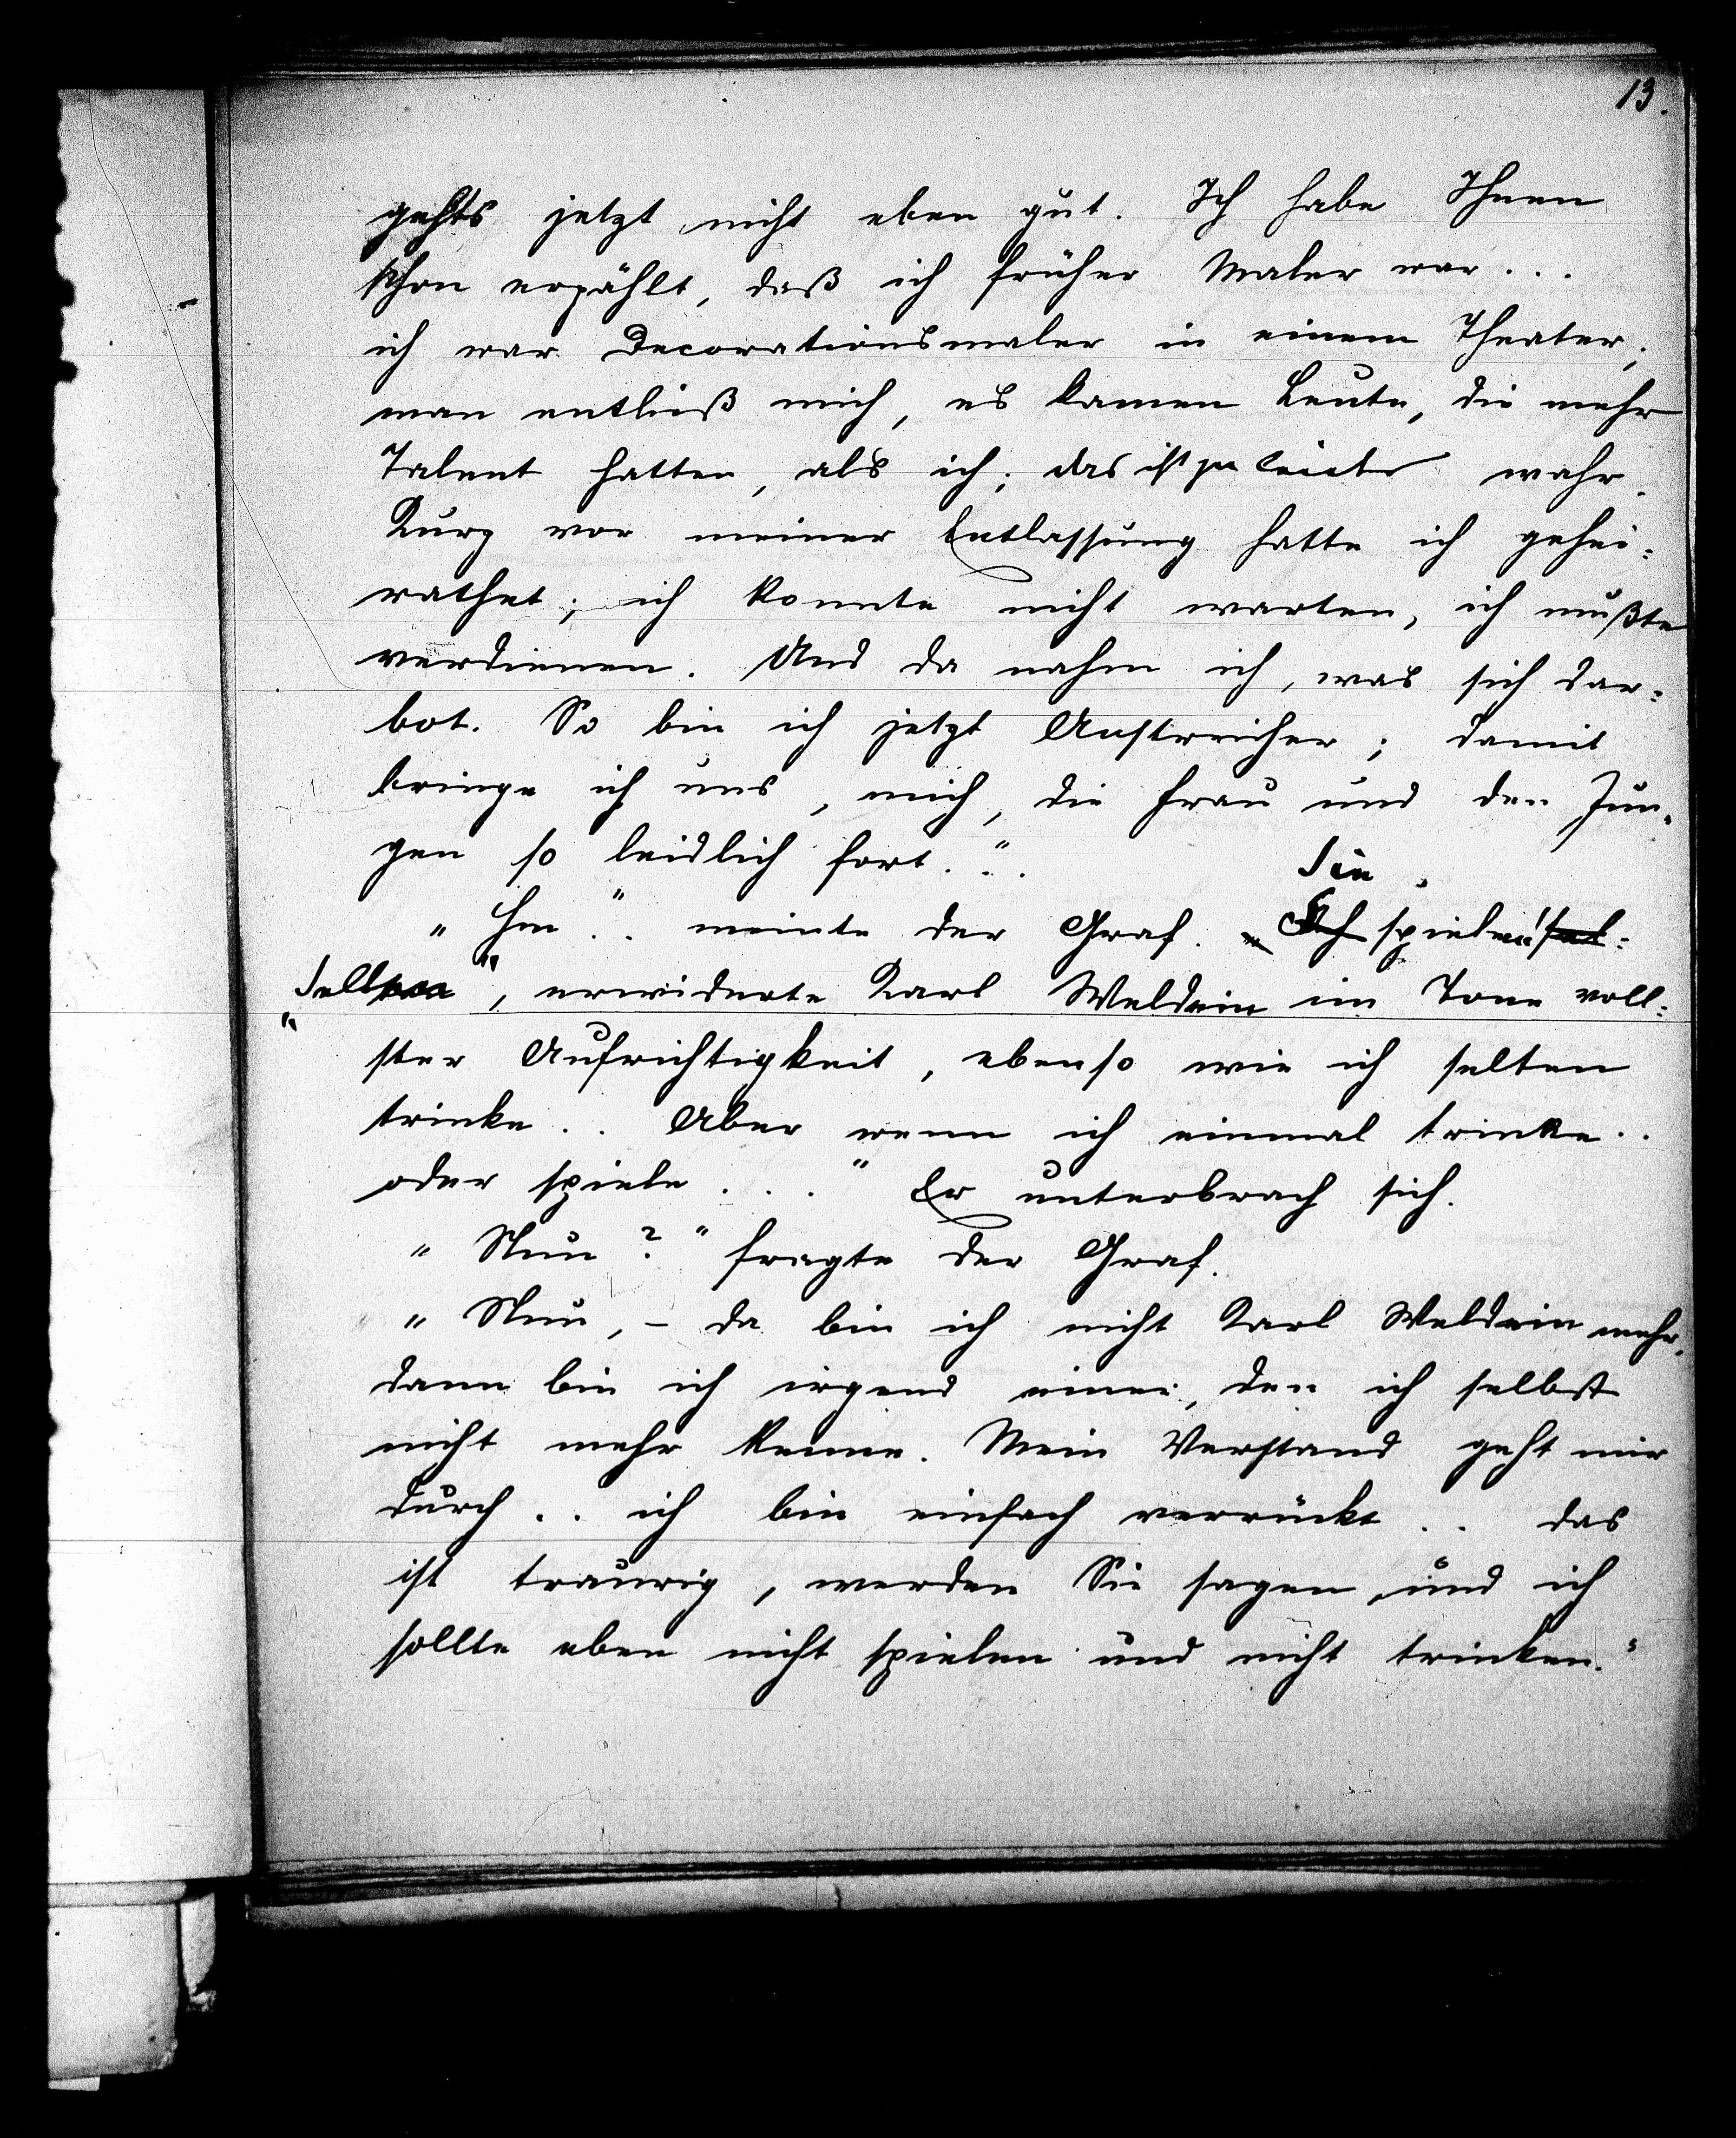 13.
gehts jetzt nicht eben gut. Ich habe Ihnen
schon erzählt, daß ich früher Maler war...
ich war Decorationsmaler in einem Theater;
man entließ mich, es kamen Leute, die mehr
Talent hatten, als ich; das ist ja leicht wahr.
Kurz vor meiner Entlassung hatte ich gehei=
rathet; ich konnte nicht warten, ich mußte
verdienen. Und da nahm ich, was sich dar=
bot. So bin ich jetzt Anstreicher; damit
bringe ich uns, mich, die Frau und den Jun=
gen so leidlich fort.."
Sie
„Hm".. meinte der Graf. „Ich spielen! sel=
Selten", erwiderte Karl Weldein im Tone voll=
ster Aufrichtigkeit, ebenso wie ich selten
trinke.. Aber wenn ich einmal trinke..
oder spiele..." Er unterbrach sich.
„Nun?" fragte der Graf.
„Nun, – da bin ich nicht Karl Weldein mehr,
dann bin ich irgend einer, den ich selbst
nicht mehr kenne. Mein Verstand geht mir
durch.. ich bin einfach verrückt.. das
ist traurig, werden Sie sagen, und ich
sollte eben nicht spielen und nicht trinken."